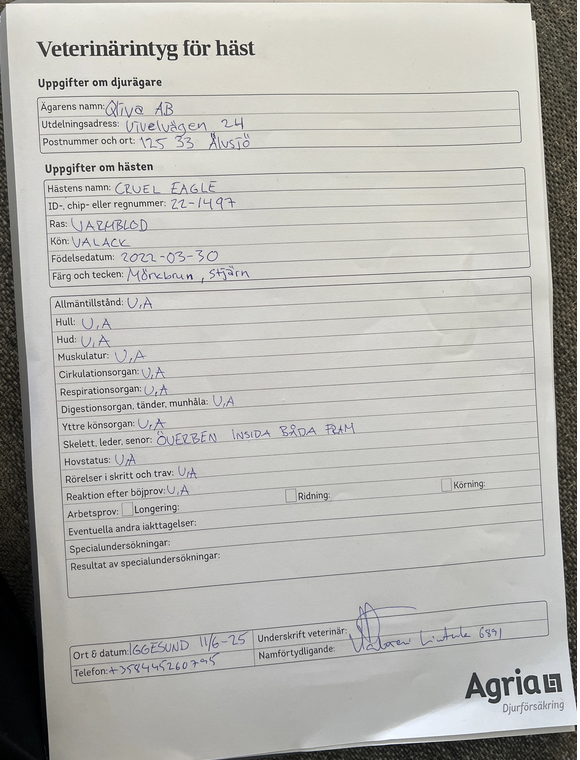 Veterinärintyg för häst
Uppgifter om djurägare
Ägarens namn: Qliva AB
Utdelningsadress: Vivelvägen 24
Postnummer och ort: 125 33 Älvsjö
Uppgifter om hästen
Hästens namn: CRUEL EAGLE
ID-, chip- eller regnummer: 22-1497
Ras: VARMBLOD
Kön: VALACK
Födelsedatum: 2022-03-30
Färg och tecken: Mörkbrun, Stjärn
Allmäntillstånd: U,A
Hull: U,A
Hud: U,A
Muskulatur: U,A
Cirkulationsorgan: U,A
Respirationsorgan: U,A
Digestionsorgan, tänder, munhåla: U,A
Yttre könsorgan: U,A
Skelett, leder, senor: ÖVERBEN INSIDA BÅDA FRAM
Hovstatus: U,A
Rörelser i skritt och trav: U,A
Reaktion efter böjprov: U,A
Arbetsprov: Longering: Ridning: Körning:
Eventuella andra iakttagelser:
Specialundersökningar:
Resultat av specialundersökningar:
Ort & datum: IGGESUND 11/6-25 Underskrift veterinär:
Telefon: +358445260795 Namnförtydligande: 6891
Agria
Djurförsäkring